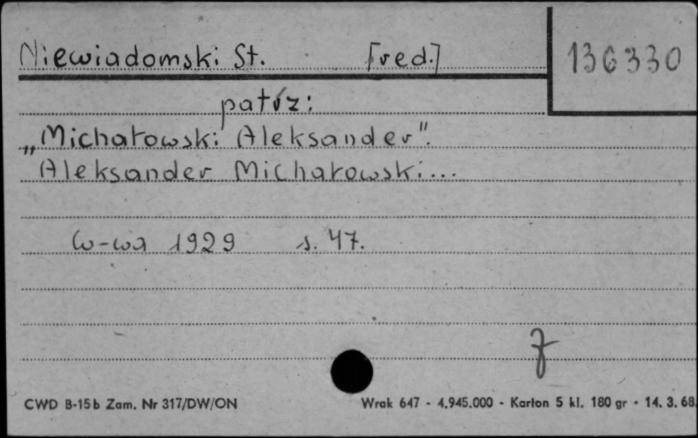 Niewiadomski St. [red.] 136330
patrz:
„Michałowski Aleksander".
Aleksander Michałowski...
W-wa 1929 s. 47.
CWD B-15b Zam. Nr 317/DW/ON Wrak 647 - 4.945.000 - Karton 5 kl. 180 gr - 14. 3. 68.